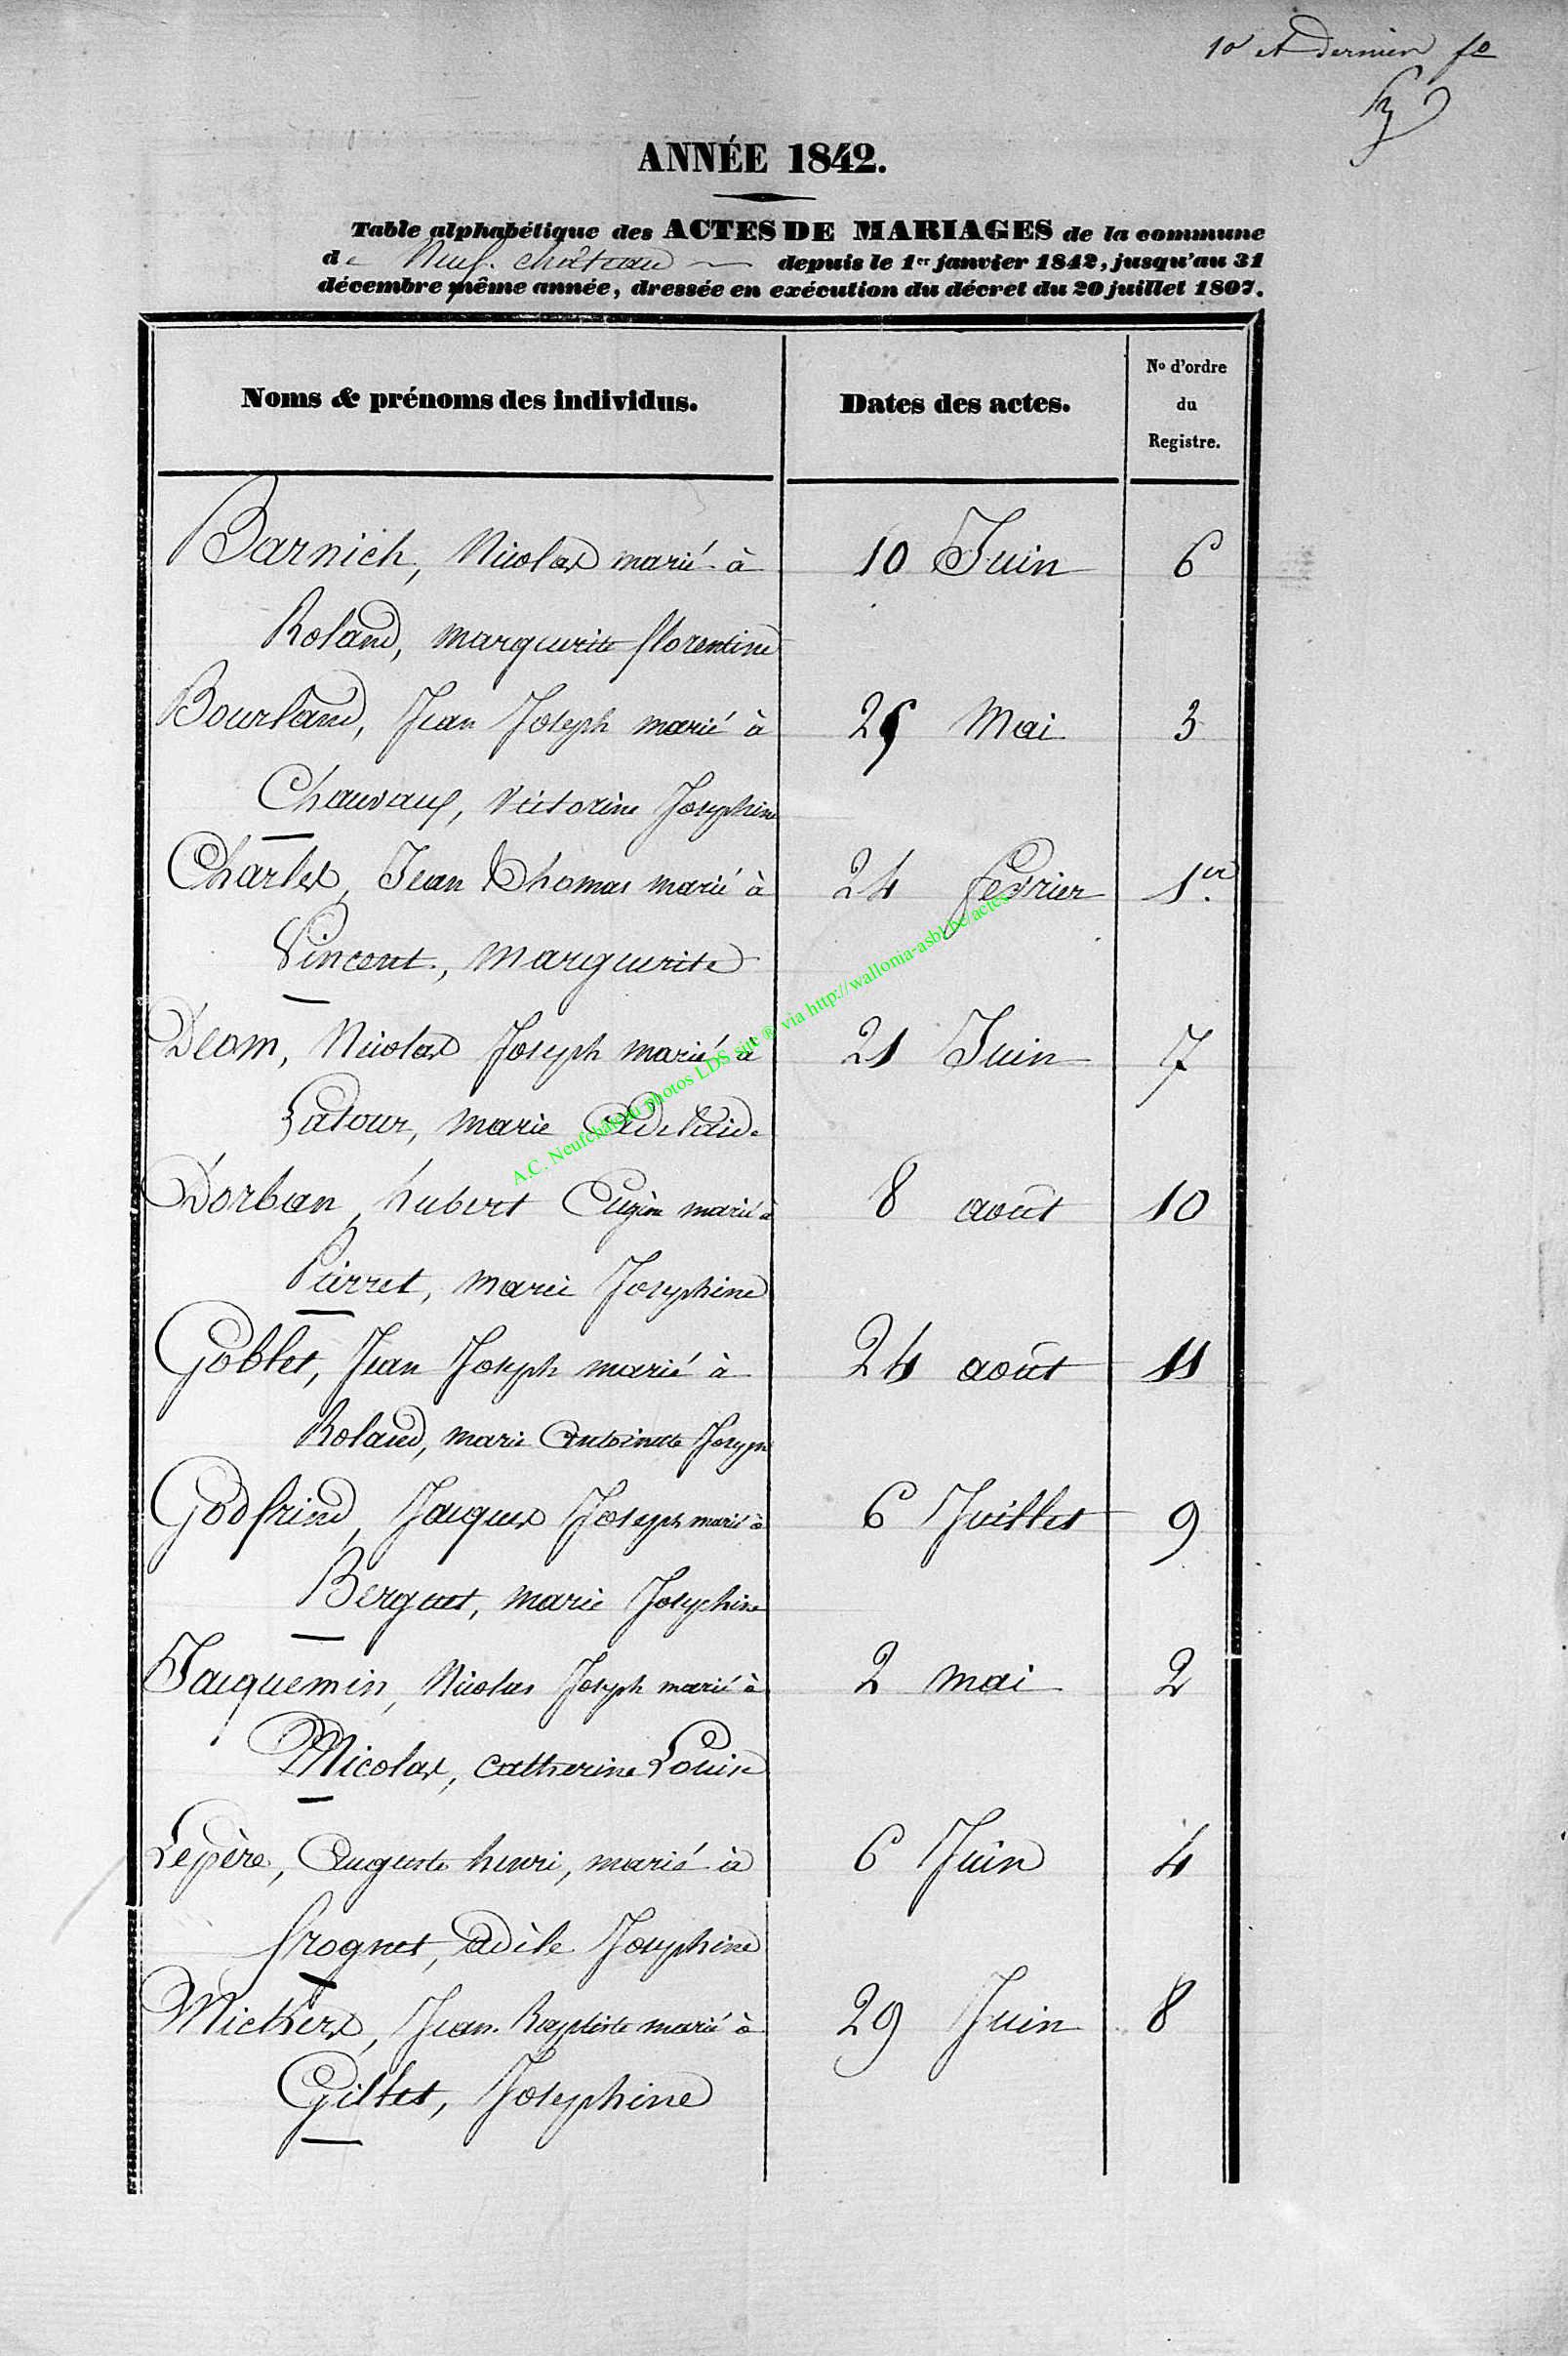 10 et dernier fo
ANNÉE 1842.
Table alphabétique des ACTES DE MARIAGES de la commune
de Neufchâteau depuis le 1er janvier 1842, jusqu'au 31
décembre même année, dressée en exécution du décret du 20 juillet 1807.
Noms & prénoms des individus. Dates des actes. No d'ordre du Registre.
Barnich, Nicolas marié à 10 Juin 6
Roland, marguerite florentine
Bourland, Jean Joseph marié à 25 Mai 3
Chauvaux, Victorine Josephine
Charles, Jean Thomas marié à 24 fevrier 1er.
Vincent, Marguerite
Deom, Nicolas Joseph marié à 21 Juin 7
Latour, marie Adelaide
Dorban, hubert Eugène marié à 8 août 10
Pierret, marie Josephine
Goblet, Jean Joseph marié à 24 août 11
Roland, marie Antoinette Joseph
Godfrind, Jacques Joseph marié à 6 Juillet 9
Berguet, marie Josephine
Jacquemin, Nicolas Joseph marié à 2 mai 2
Nicolas, catherine Louise
Lepère, Auguste henri, marié à 6 Juin 4
frognet, Adèle Josephine
Michers, Jean Baptiste marié à 29 Juin 8
Gillet, Josephine
A.C. Neufchâteau photos LDS site ® via http://wallonia-asbl.be/actes